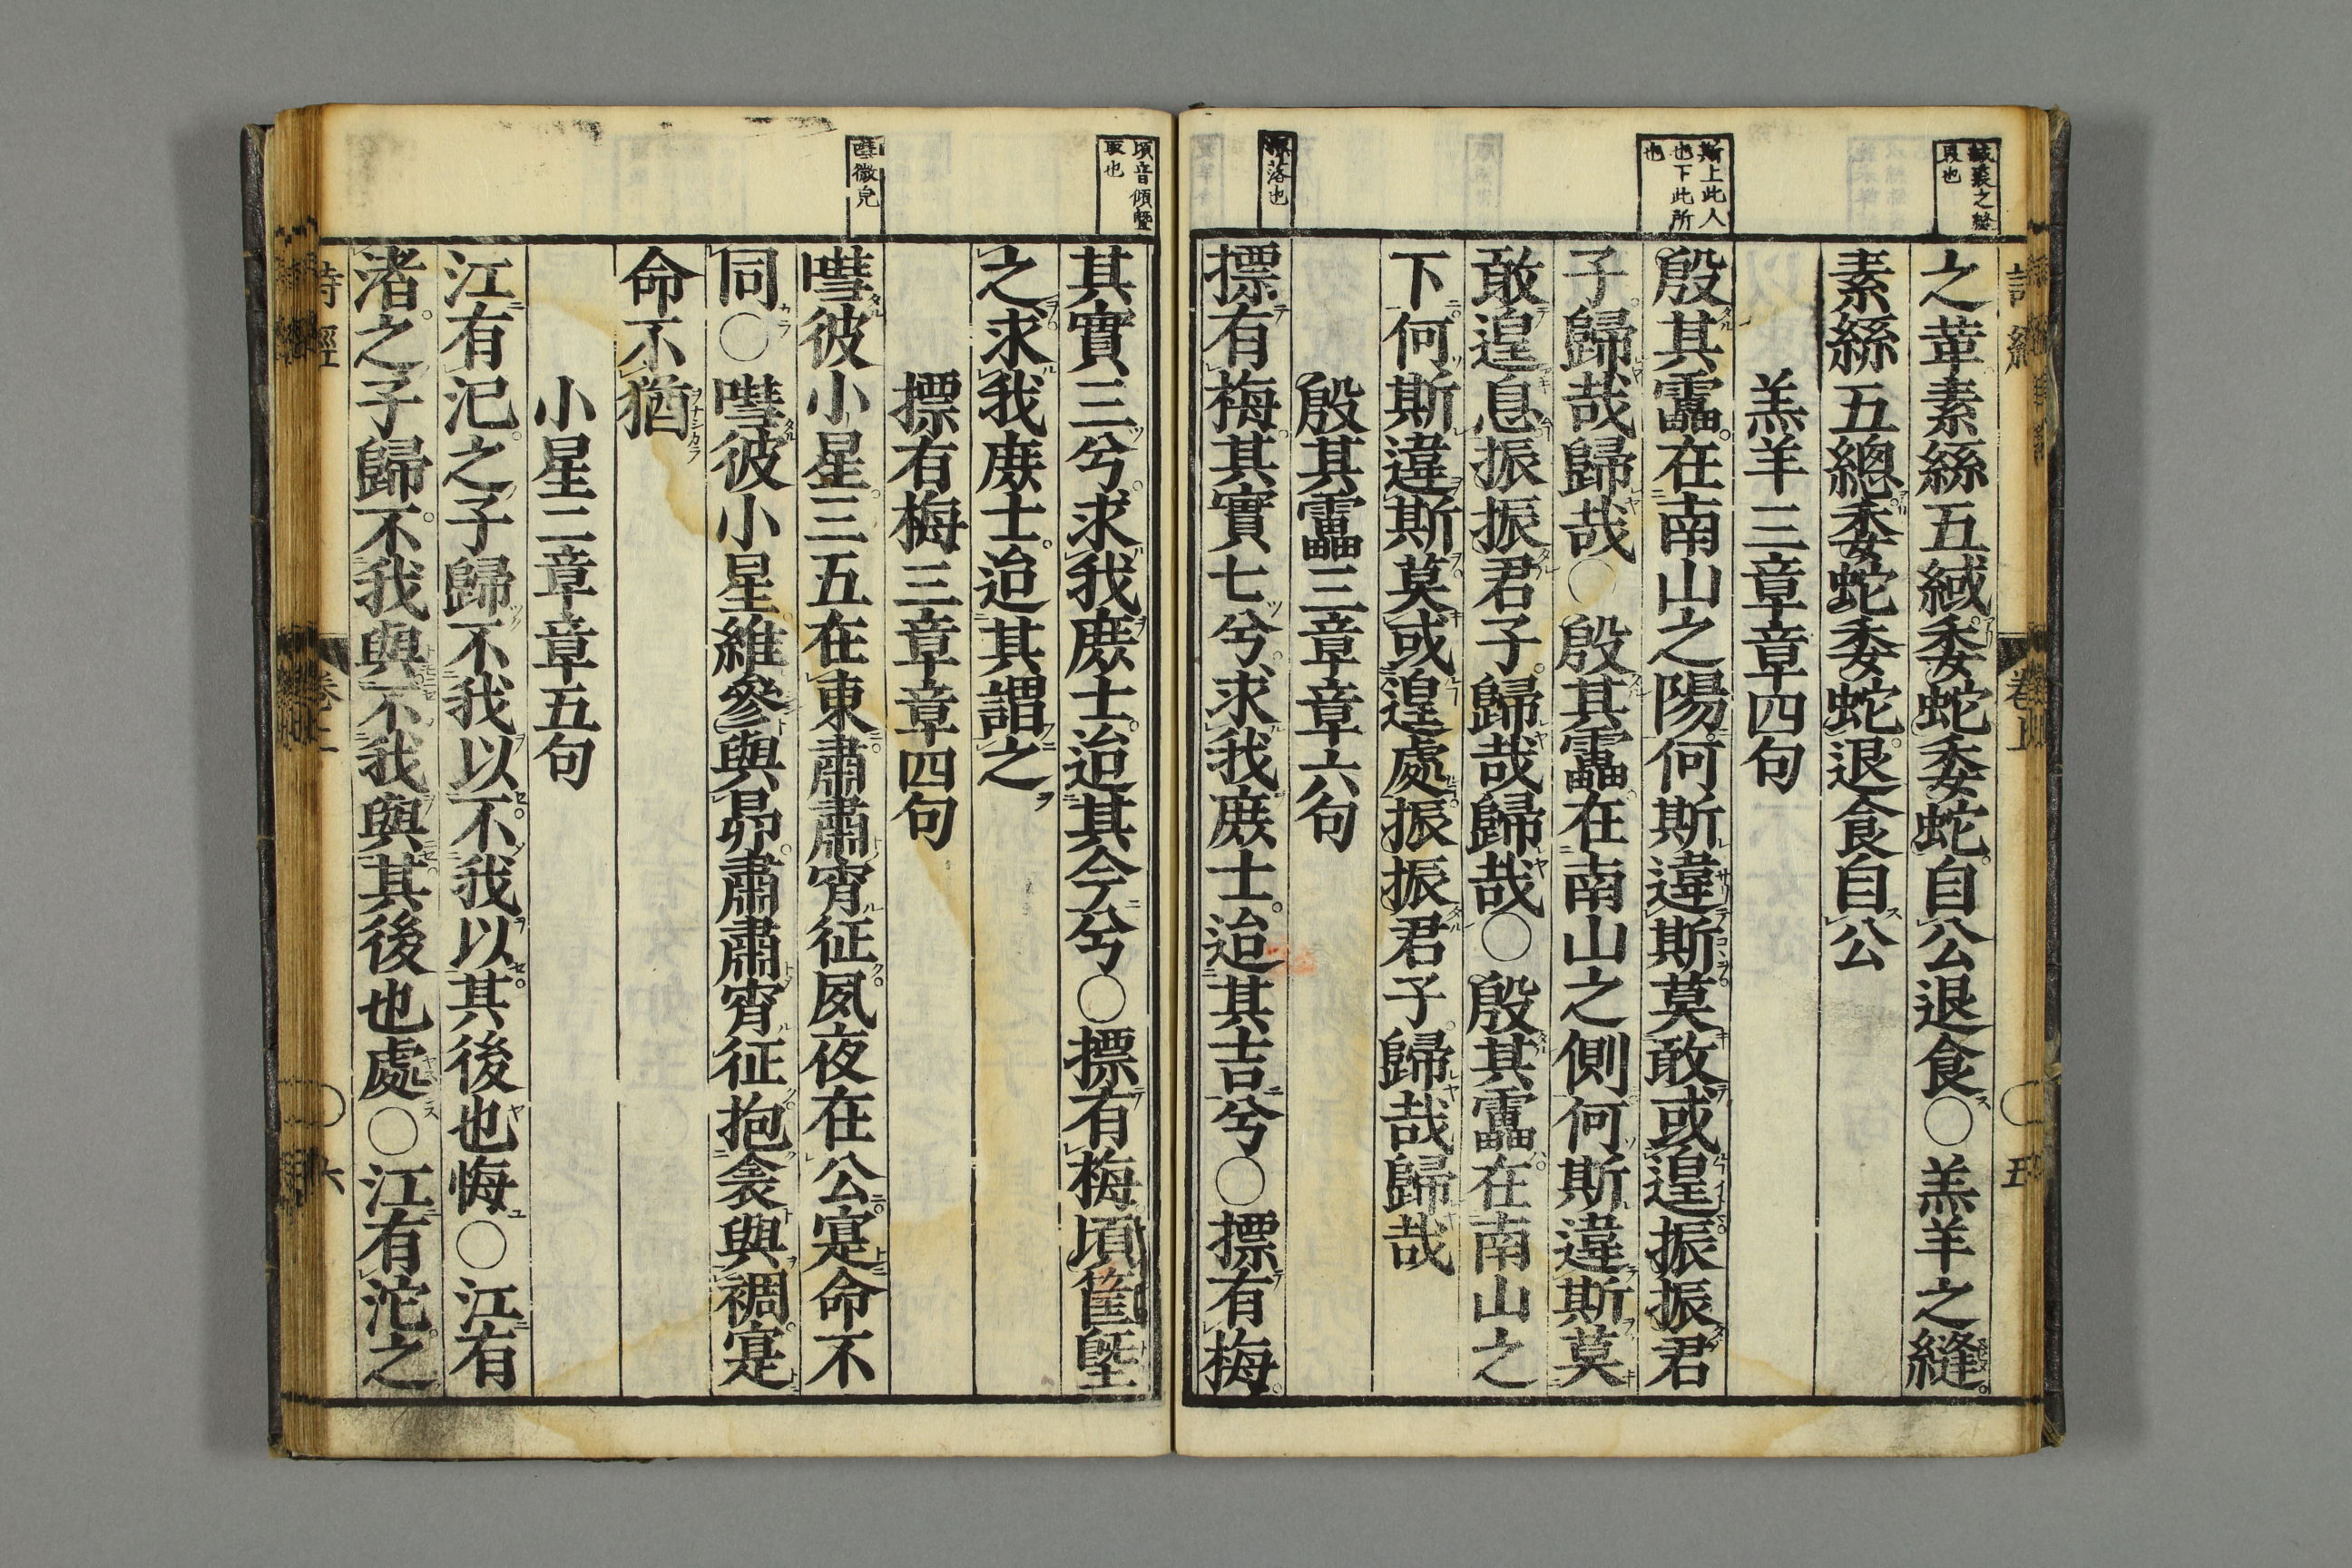 緎裘之縫
叚也
之革素絲五緎委蛇委蛇自公退食○羔羊之縫
素絲五總委蛇委蛇退食自公
羔羊三章章四句
斯上此人
也下此所
也
殷其靁在南山之陽何斯違斯莫敢或遑振振君
子歸哉歸哉○殷其靁在南山之側何斯違斯莫
敢遑息振振君子歸哉歸哉○殷其靁在南山之
下何斯違斯莫或遑處振振君子歸哉歸哉
殷其靁三章章六句
摽落也
摽有梅其實七兮求我庻士迨其吉兮○摽有梅
頃音傾塈
取也
其實三兮求我庻士迨其今兮○摽有梅頃筐塈
之求我庻士迨其謂之
摽有梅三章章四句
嘒微皃
嘒彼小星三五在東肅肅宵征夙夜在公寔命不
同○嘒彼小星維參與昴肅肅宵征抱衾與裯寔
命不猶
小星二章章五句
江有汜之子歸不我以不我以其後也悔○江有
渚之子歸不我與不我與其後也處○江有沱之
詩經
卷之一
○
六